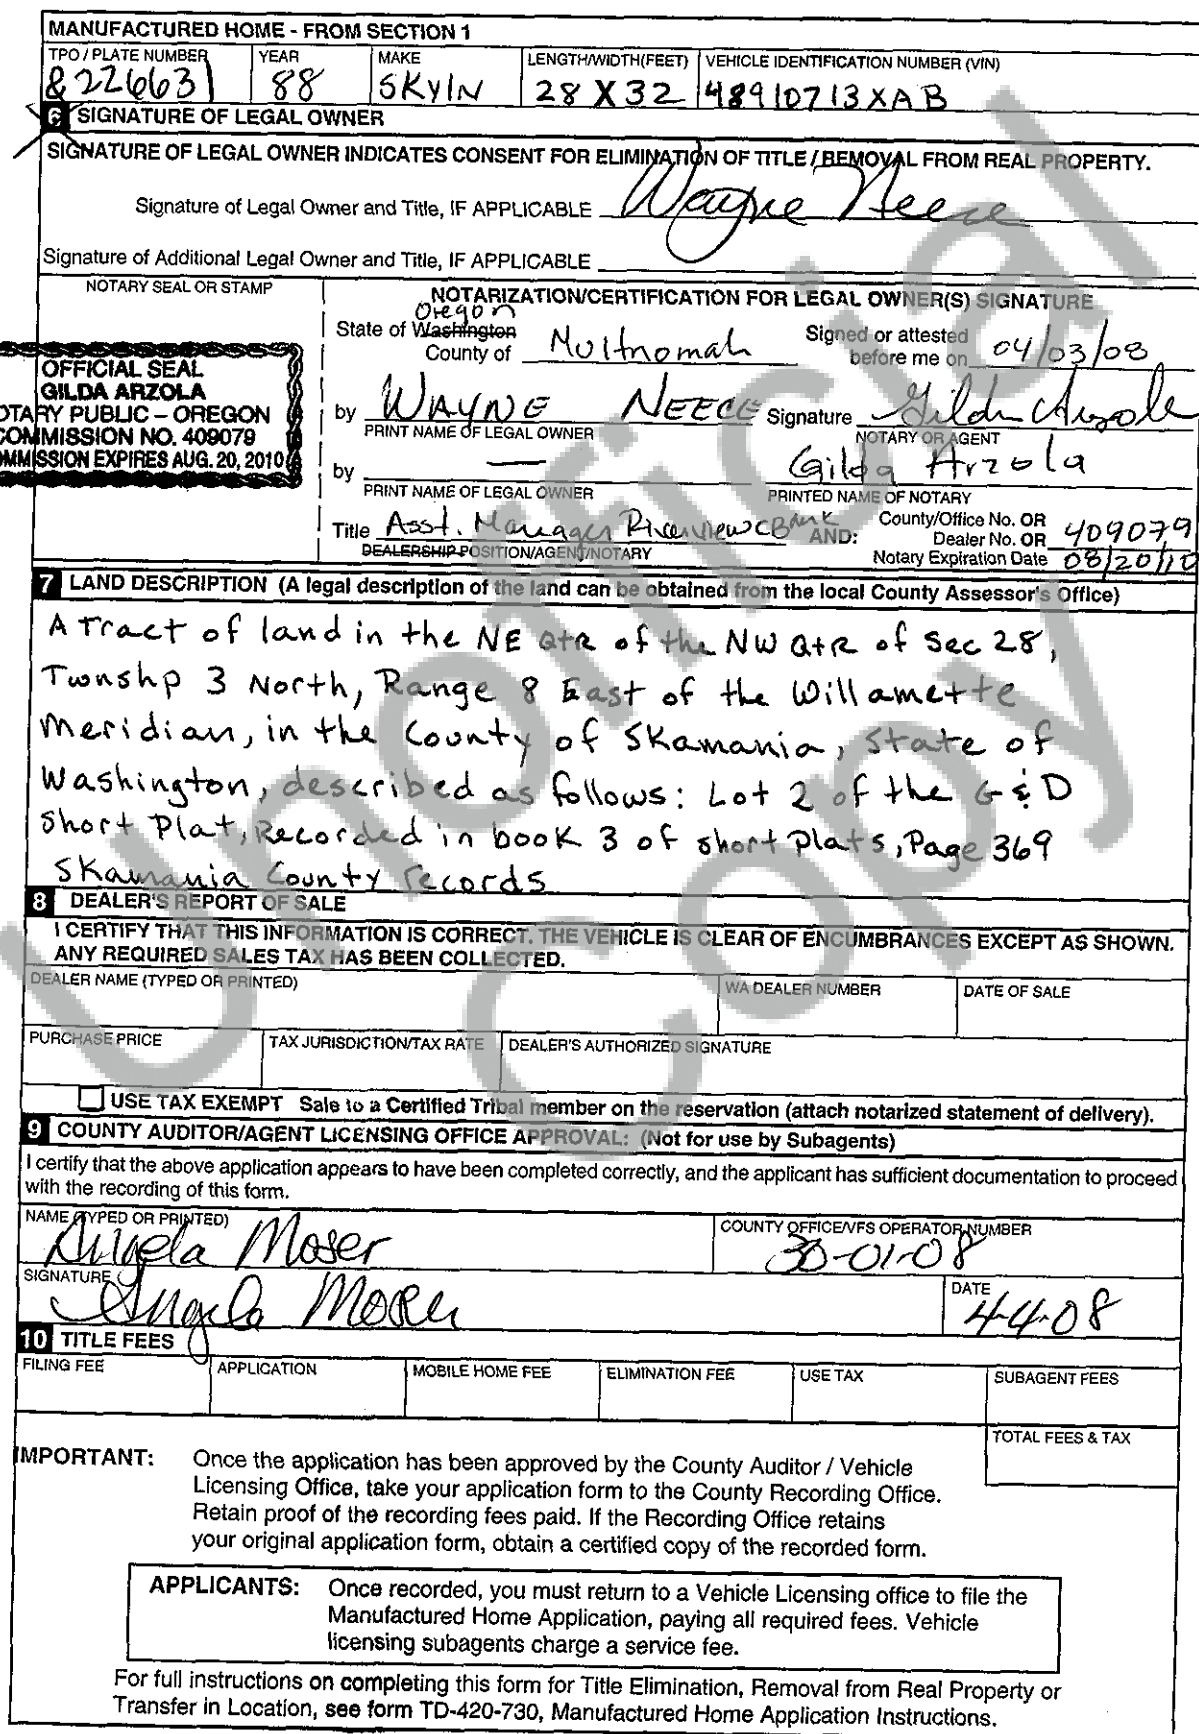 MANUFACTURED HOME - FROM SECTION 1
TPO / PLATE NUMBER YEAR MAKE LENGTH/WIDTH(FEET) VEHICLE IDENTIFICATION NUMBER (VIN)
822663 88 SKYLN 28 X 32 48910713XAB
6 SIGNATURE OF LEGAL OWNER
SIGNATURE OF LEGAL OWNER INDICATES CONSENT FOR ELIMINATION OF TITLE / REMOVAL FROM REAL PROPERTY.
Signature of Legal Owner and Title, IF APPLICABLE Wayne Neece
Signature of Additional Legal Owner and Title, IF APPLICABLE
NOTARY SEAL OR STAMP
OFFICIAL SEAL
GILDA ARZOLA
OTARY PUBLIC – OREGON
COMMISSION NO. 409079
MMISSION EXPIRES AUG. 20, 2010
NOTARIZATION/CERTIFICATION FOR LEGAL OWNER(S) SIGNATURE
Oregon
State of Washington Signed or attested
County of Multnomah before me on 04/03/08
by WAYNE NEECE Signature Gilda Arzola
PRINT NAME OF LEGAL OWNER NOTARY OR AGENT
by — Gilda Arzola
PRINT NAME OF LEGAL OWNER PRINTED NAME OF NOTARY
Title Asst. Manager Riverview C Bank AND: County/Office No. OR
Dealer No. OR 409079
DEALERSHIP POSITION/AGENT/NOTARY Notary Expiration Date 08/20/10
7 LAND DESCRIPTION (A legal description of the land can be obtained from the local County Assessor's Office)
A Tract of land in the NE QtR of the NW QtR of Sec 28,
Twnshp 3 North, Range 8 East of the Willamette
Meridian, in the County of Skamania, State of
Washington, described as follows: Lot 2 of the G & D
Short Plat, Recorded in book 3 of short Plats, Page 369
Skamania County records
8 DEALER'S REPORT OF SALE
I CERTIFY THAT THIS INFORMATION IS CORRECT. THE VEHICLE IS CLEAR OF ENCUMBRANCES EXCEPT AS SHOWN.
ANY REQUIRED SALES TAX HAS BEEN COLLECTED.
DEALER NAME (TYPED OR PRINTED) WA DEALER NUMBER DATE OF SALE
PURCHASE PRICE TAX JURISDICTION/TAX RATE DEALER'S AUTHORIZED SIGNATURE
USE TAX EXEMPT Sale to a Certified Tribal member on the reservation (attach notarized statement of delivery).
9 COUNTY AUDITOR/AGENT LICENSING OFFICE APPROVAL: (Not for use by Subagents)
I certify that the above application appears to have been completed correctly, and the applicant has sufficient documentation to proceed
with the recording of this form.
NAME (TYPED OR PRINTED) COUNTY OFFICE/VFS OPERATOR NUMBER
Angela Moser 30-01-08
SIGNATURE DATE
Angela Moser 4-4-08
10 TITLE FEES
FILING FEE APPLICATION MOBILE HOME FEE ELIMINATION FEE USE TAX SUBAGENT FEES
TOTAL FEES & TAX
IMPORTANT: Once the application has been approved by the County Auditor / Vehicle
Licensing Office, take your application form to the County Recording Office.
Retain proof of the recording fees paid. If the Recording Office retains
your original application form, obtain a certified copy of the recorded form.
APPLICANTS: Once recorded, you must return to a Vehicle Licensing office to file the
Manufactured Home Application, paying all required fees. Vehicle
licensing subagents charge a service fee.
For full instructions on completing this form for Title Elimination, Removal from Real Property or
Transfer in Location, see form TD-420-730, Manufactured Home Application Instructions.
Unofficial
Copy